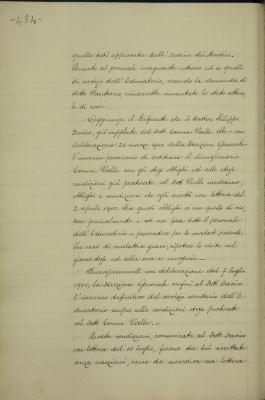 -434-
quella testè approvata dall'Ordine dei Medici.
Quanto al personale insegnante interno ed a quello
di servizio dell'Educatorio, secondo la domanda di
detto Sanitario rimarrebbe immutato lo stato attua-
le di cose.
Soggiunge il Riferente che il Dottor Filippo
già supplente del Dott. Comm. Valle ebbe con
deliberazione 24 marzo 1900 della Direzione Generale
l'incarico provvisorio di sostituire il dimissionario
Comm. Valle con gli stessi obblighi ed alle stesse
condizioni già praticate col Dott. Valle medesimo;
obblighi e condizioni che egli accettò con lettera del
2 aprile 1900. Tra questi obblighi vi era quello di visi-
tare personalmente a sue spese tutto il personale
dell'Educatorio e provvedere per le malattie
In caso di malattia grave, ripetere la visita nel
giorno stesso ed alla sera se necessario.
Successivamente con deliberazione del 7 luglio
1900, la Direzione Generale affidò al Dott.
l'incarico definitivo del servizio sanitario dell'E-
ducatorio sempre alle condizioni stesse praticate
col Dott. Comm. Valle.
Queste condizioni, comunicate al Dott.
con lettera del 10 luglio, furono da lui accettate
senza eccezioni, come da successiva sua lettera